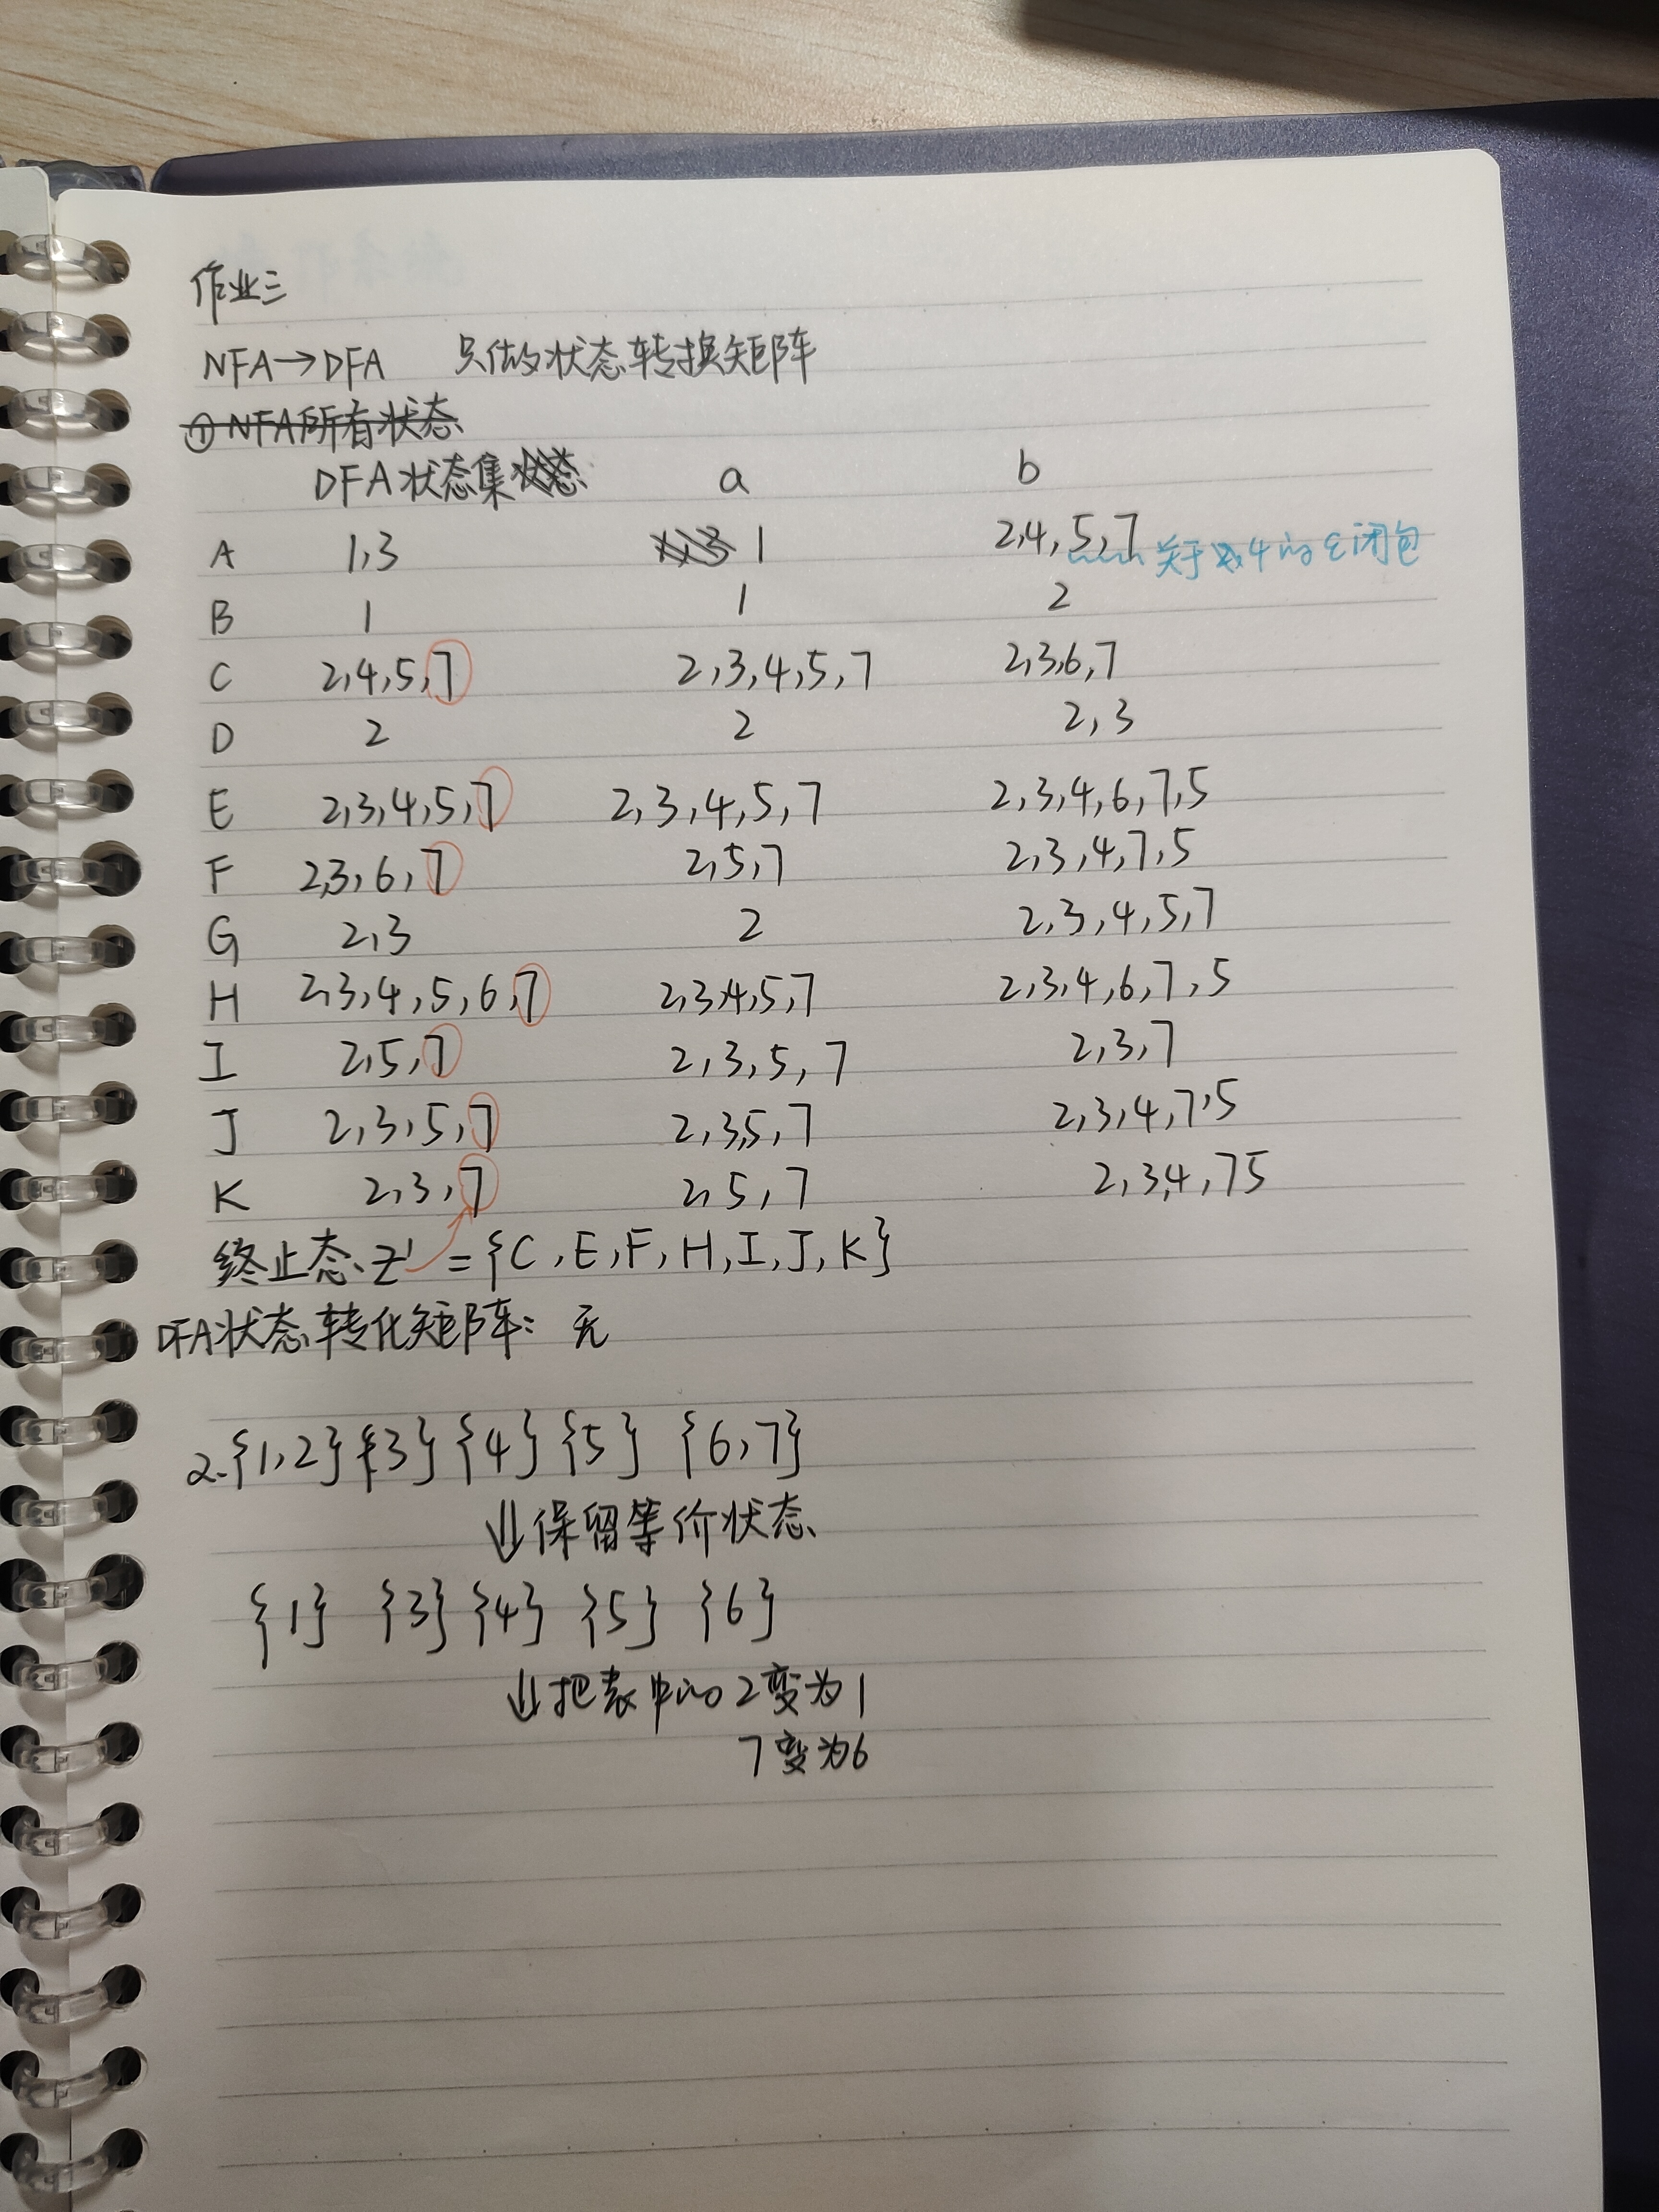 作业三
NFA→DFA 只做状态转换矩阵
① NFA所有状态
DFA状态集 a b
A 1,3 1 2,4,5,7 关于4的ε闭包
B 1 1 2
C 2,4,5,7 2,3,4,5,7 2,3,6,7
D 2 2 2,3
E 2,3,4,5,7 2,3,4,5,7 2,3,4,6,7,5
F 2,3,6,7 2,5,7 2,3,4,7,5
G 2,3 2 2,3,4,5,7
H 2,3,4,5,6,7 2,3,4,5,7 2,3,4,6,7,5
I 2,5,7 2,3,5,7 2,3,7
J 2,3,5,7 2,3,5,7 2,3,4,7,5
K 2,3,7 2,5,7 2,3,4,7 5
终止态Z' = {C,E,F,H,I,J,K}
DFA状态转化矩阵: 无
2. {1,2} {3} {4} {5} {6,7}
⇓ 保留等价状态
{1} {3} {4} {5} {6}
⇓ 把表中的2变为1
7变为6